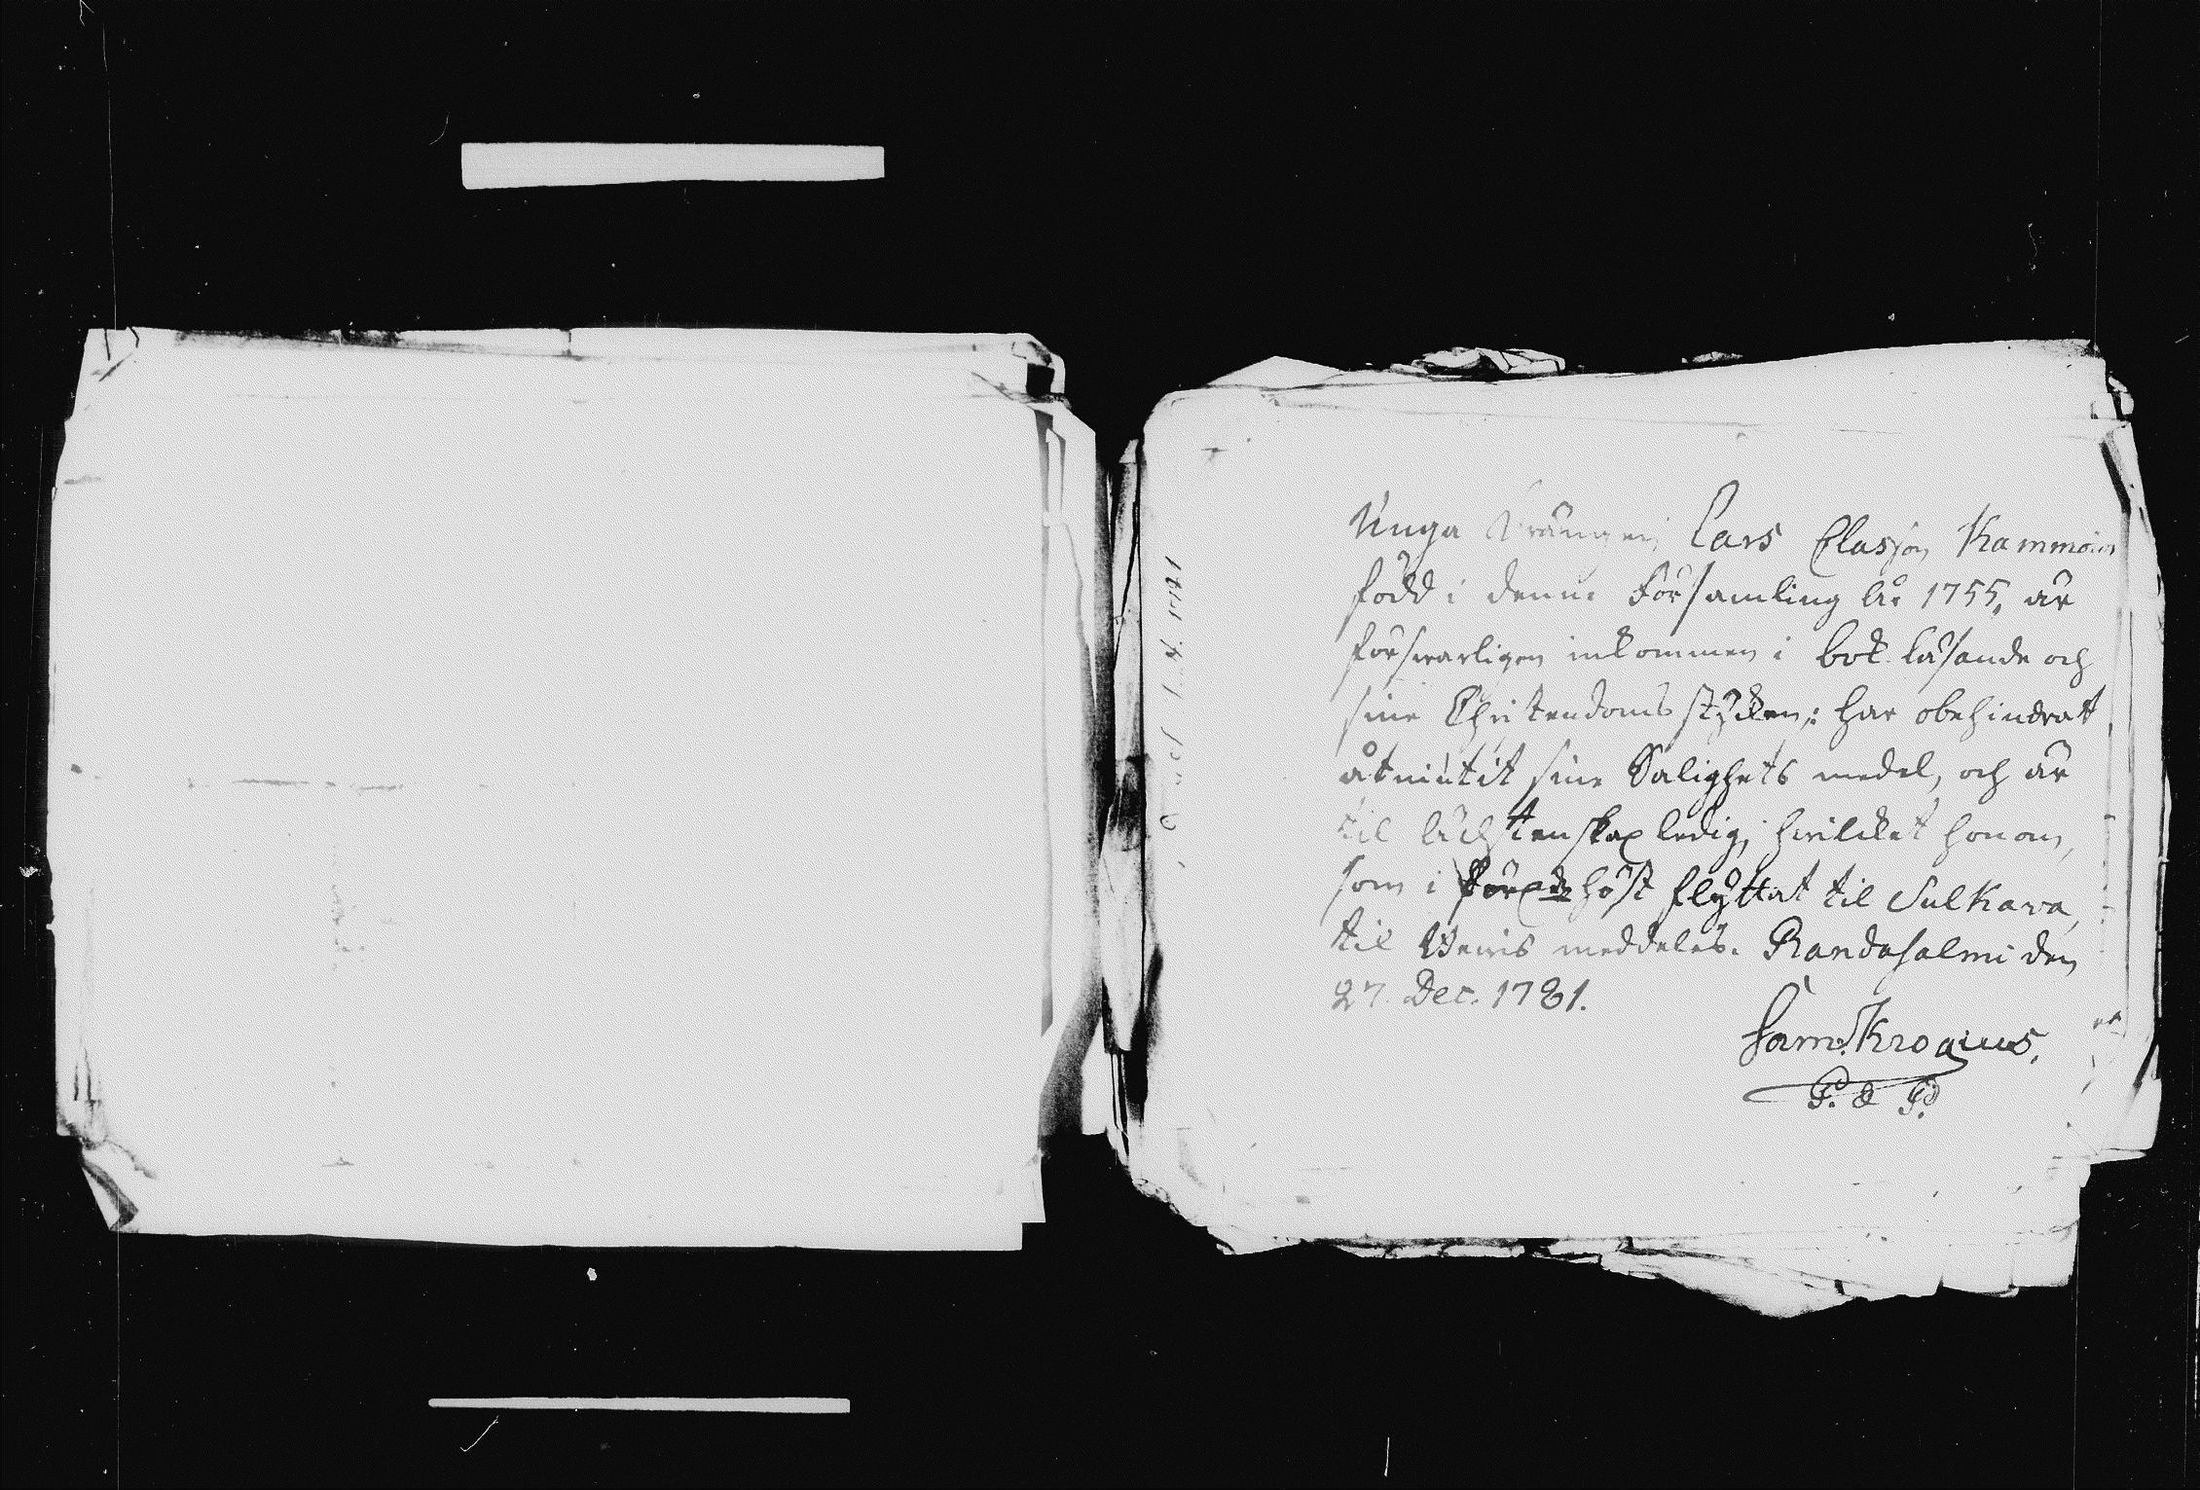 Unga Drängen Lars Classon Kammoin
född i denna Församling år 1755, är
försvarligen inkommen i bok läsande och
sine Christendoms stycken; har obehindrat
åtniutit sine Salighets medel, och är
til ächtenskap ledig; hvilcket honom,
som i höst flyttat til Sulkava,
til bevis meddelas. Randasalmi den
27. Dec. 1781.
Sam. Krogius.
P. & P.